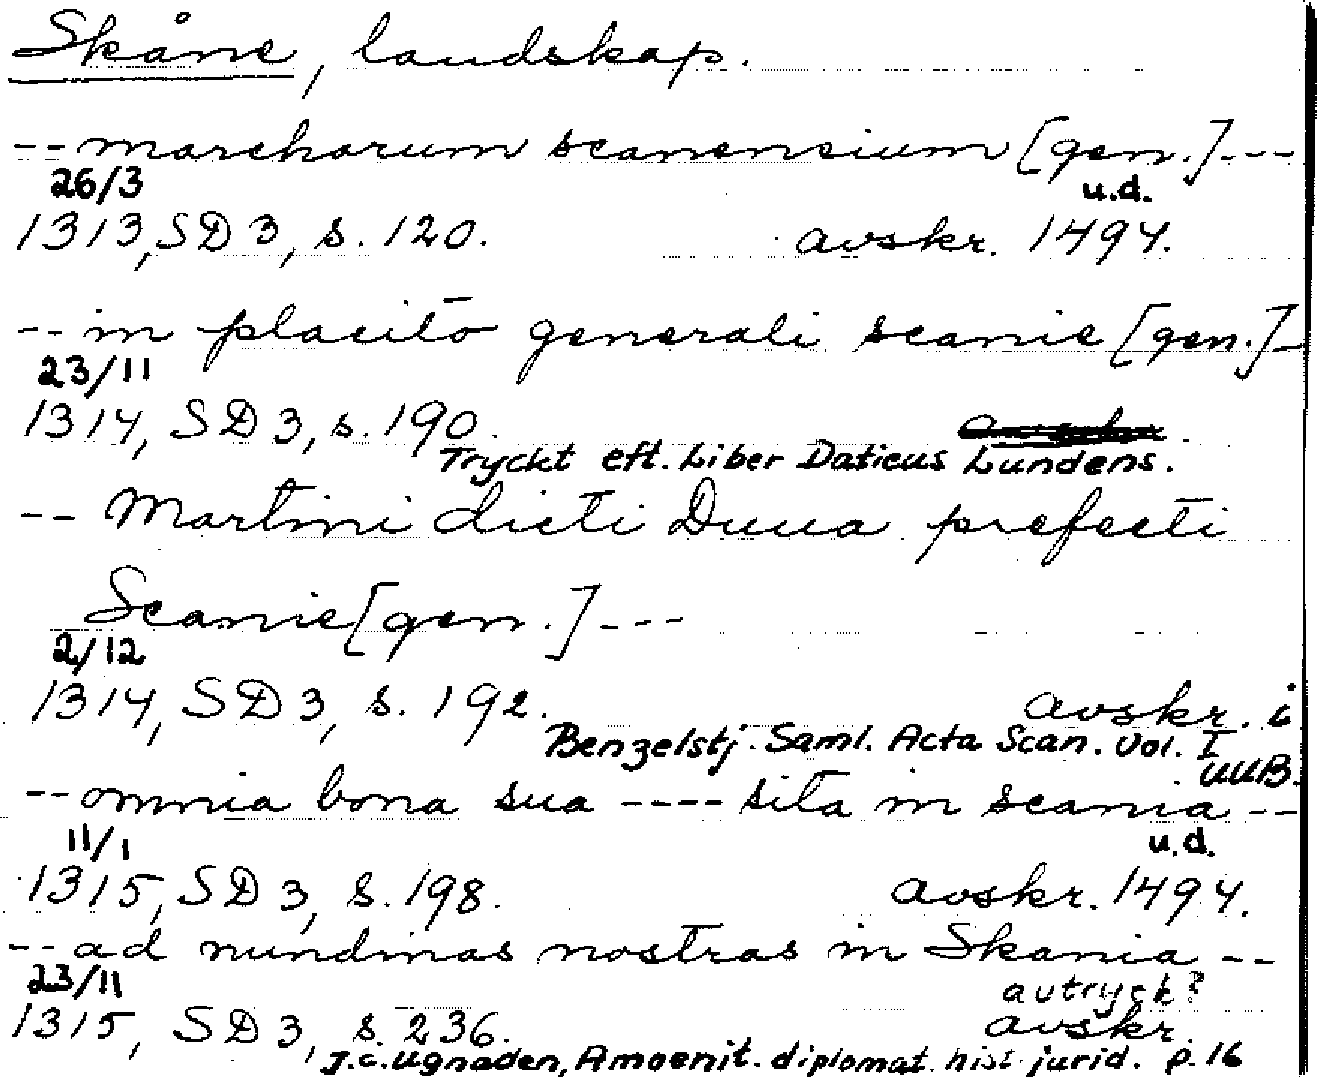 Skåne, landskap.
-- marcharum scanensium [gen.]---
26/3 u.d.
1313, SD 3, s. 120. avskr. 1494.
-- in placito generali scanie [gen.]-
23/11
1314, SD 3, s. 190.
Tryckt eft. Liber Daticus Lundens.
-- Martini dicti Duua prefecti
Scanie [gen.]---
2/12
1314, SD 3, s. 192. avskr. i
Benzelstj. Saml. Acta Scan. Vol. I
UUB.
-- omnia bona sua ---- sita in scania --
11/1 u.d.
1315, SD 3, s. 198. avskr. 1494.
-- ad nundinas nostras in Skania --
23/11 avtryck?
1315, SD 3, s. 236. avskr.
J.C. Ugnaden, Amoenit. diplomat. hist. jurid. p. 16